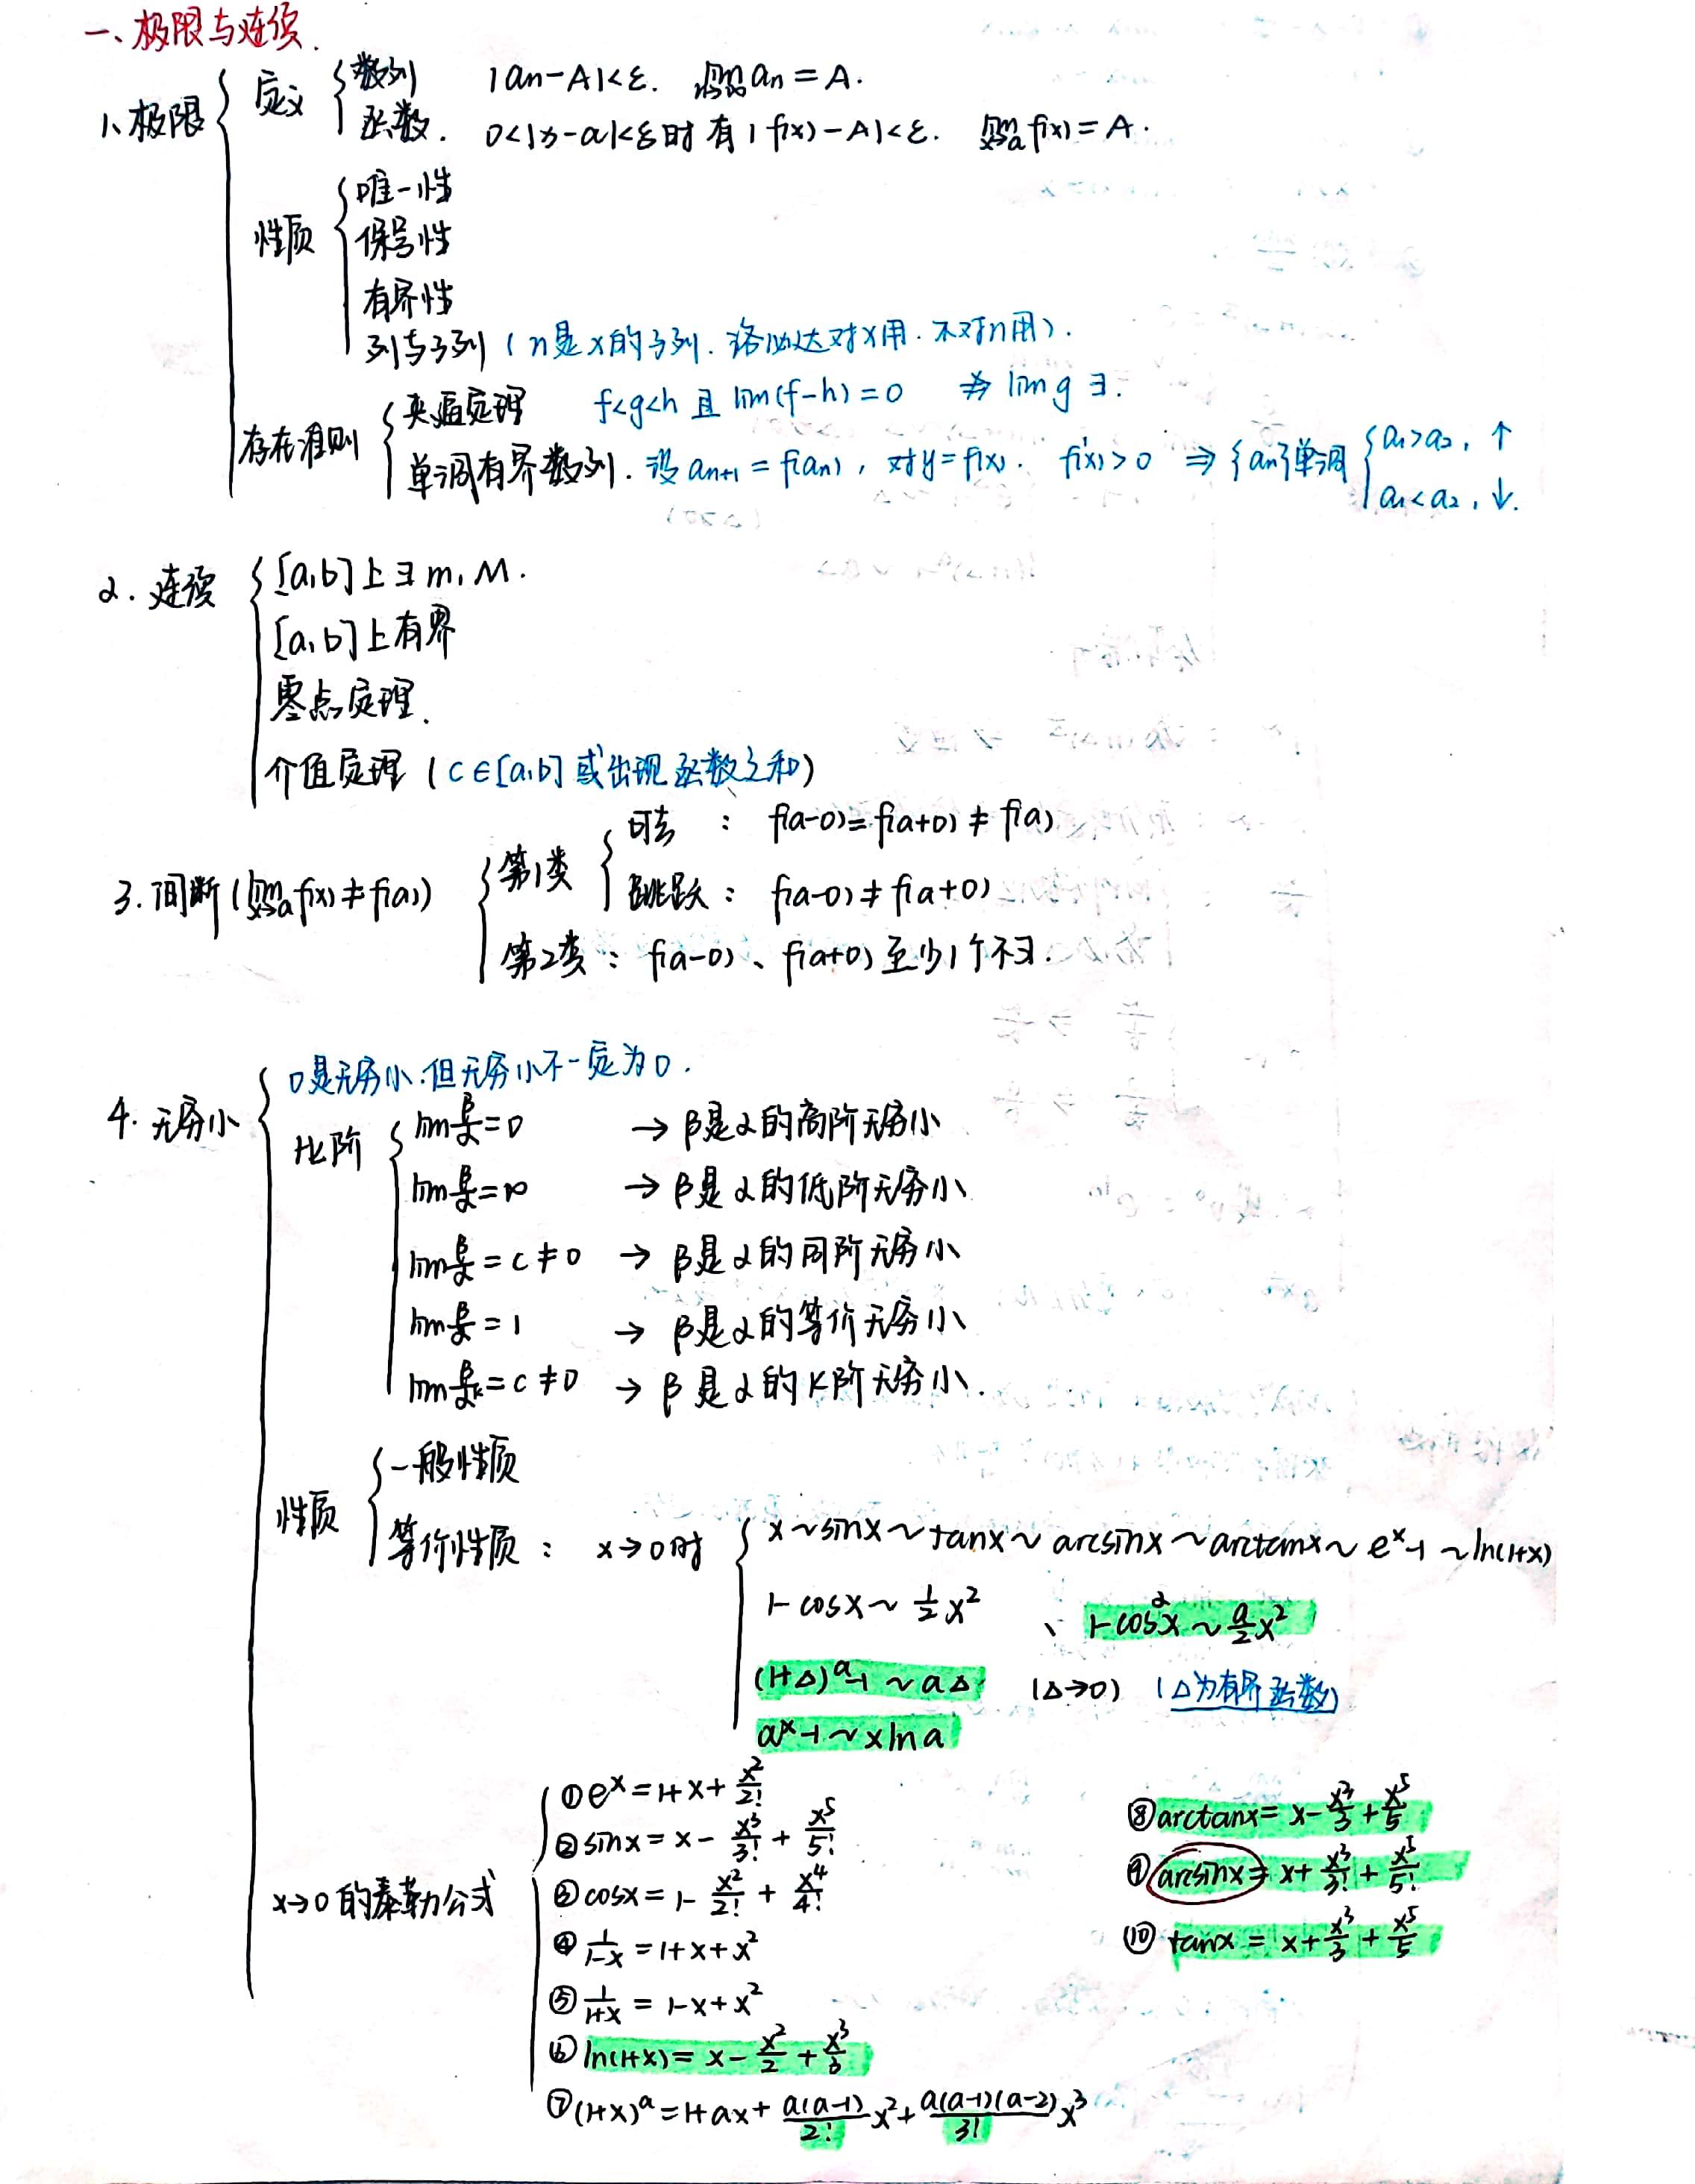 一、极限与连续.
1、极限
定义
数列 |an-A|<ε. lim n→∞ an=A.
函数. 0<|x-a|<δ时有|f(x)-A|<ε. lim x→a f(x)=A.
性质
唯一性
保号性
有界性
列与子列(n是x的子列.洛必达对x用.不对n用).
存在准则
夹逼定理 f<g<h且lim(f-h)=0 ⇏ lim g ∃.
单调有界数列.设an+1=f(an), 对y=f(x). f'(x)>0 ⇒ {an}单调
a1>a2, ↑
a1<a2, ↓.
2.连续
[a,b]上∃m,M.
[a,b]上有界
零点定理.
介值定理(C∈[a,b]或出现函数之和)
3.间断(lim x→a f(x)≠f(a))
第1类
可去: f(a-0)=f(a+0)≠f(a)
跳跃: f(a-0)≠f(a+0)
第2类: f(a-0)、f(a+0)至少1个不∃.
4.无穷小
0是无穷小.但无穷小不一定为0.
比阶
lim β/α=0 → β是α的高阶无穷小
lim β/α=∞ → β是α的低阶无穷小
lim β/α=c≠0 → β是α的同阶无穷小
lim β/α=1 → β是α的等价无穷小
lim β/α^k=c≠0 → β是α的k阶无穷小.
性质
一般性质
等价性质: x→0时
x~sinx~tanx~arcsinx~arctanx~e^x-1~ln(1+x)
1-cosx~1/2 x²、1-cos^a x~a/2 x²
(1+Δ)^a-1~aΔ (Δ→0) (Δ为有界函数)
a^x-1~xlna
x→0的泰勒公式
①e^x=1+x+x²/2!
②sinx=x-x³/3!+x⁵/5!
③cosx=1-x²/2!+x⁴/4!
④1/(1-x)=1+x+x²
⑤1/(1+x)=1-x+x²
⑥ln(1+x)=x-x²/2+x³/3
⑦(1+x)^a=1+ax+a(a-1)/2! x²+a(a-1)(a-2)/3! x³
⑧arctanx=x-x³/3+x⁵/5
⑨arcsinx=x+x³/3!+x⁵/5!
⑩tanx=x+x³/3+x⁵/5